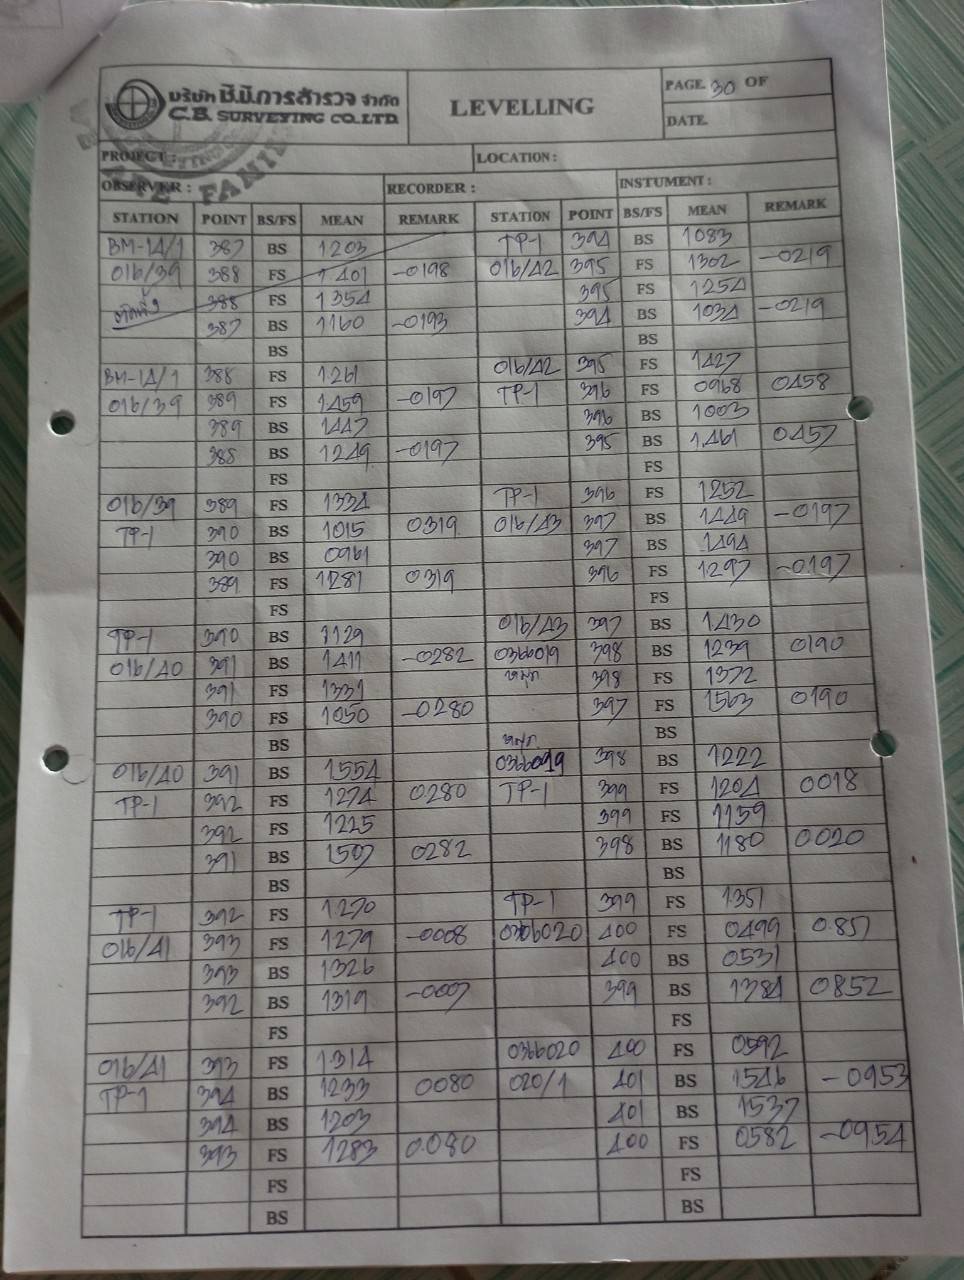 บริษัท ซี.บี.การสำรวจ จำกัด
C.B. SURVEYING CO.,LTD
LEVELLING
PAGE. 30 OF
DATE.
PROJECT :
LOCATION :
OBSERVER :
RECORDER :
INSTUMENT :
STATION POINT BS/FS MEAN REMARK STATION POINT BS/FS MEAN REMARK
BM-1A/1 387 BS 1203 TP-1 394 BS 1083
016/39 388 FS 1401 -0198 016/42 395 FS 1302 -0219
388 FS 1354 395 FS 1254
387 BS 1160 -0193 394 BS 1034 -0219
BS BS
BM-1A/1 388 FS 1261 016/42 395 FS 1427
016/39 389 FS 1459 -0197 TP-1 396 FS 0968 0458
389 BS 1447 396 BS 1003
388 BS 1249 -0197 395 BS 1461 0457
FS FS
016/39 389 FS 1334 TP-1 396 FS 1252
TP-1 390 BS 1015 0319 016/43 397 BS 1449 -0197
390 BS 0961 397 BS 1494
389 FS 1281 0319 396 FS 1297 -0197
FS FS
TP-1 390 BS 1129 016/43 397 BS 1430
016/40 391 BS 1411 -0282 0366019 398 BS 1239 0190
391 FS 1331 หมุด 398 FS 1372
390 FS 1050 -0280 397 FS 1563 0190
BS หมุด BS
016/40 391 BS 1554 0366019 398 BS 1222
TP-1 392 FS 1274 0280 TP-1 399 FS 1204 0018
392 FS 1225 399 FS 1159
391 BS 1507 0282 398 BS 1180 0020
BS BS
TP-1 392 FS 1270 TP-1 399 FS 1351
016/41 393 FS 1279 -0008 0366020 400 FS 0499 0.857
393 BS 1326 400 BS 0531
392 BS 1319 -0007 399 BS 1384 0852
FS FS
016/41 393 FS 1314 0366020 400 FS 0592
TP-1 394 BS 1233 0080 020/1 401 BS 1546 -0953
394 BS 1203 401 BS 1537
393 FS 1283 0.080 400 FS 0582 -0954
FS FS
BS BS